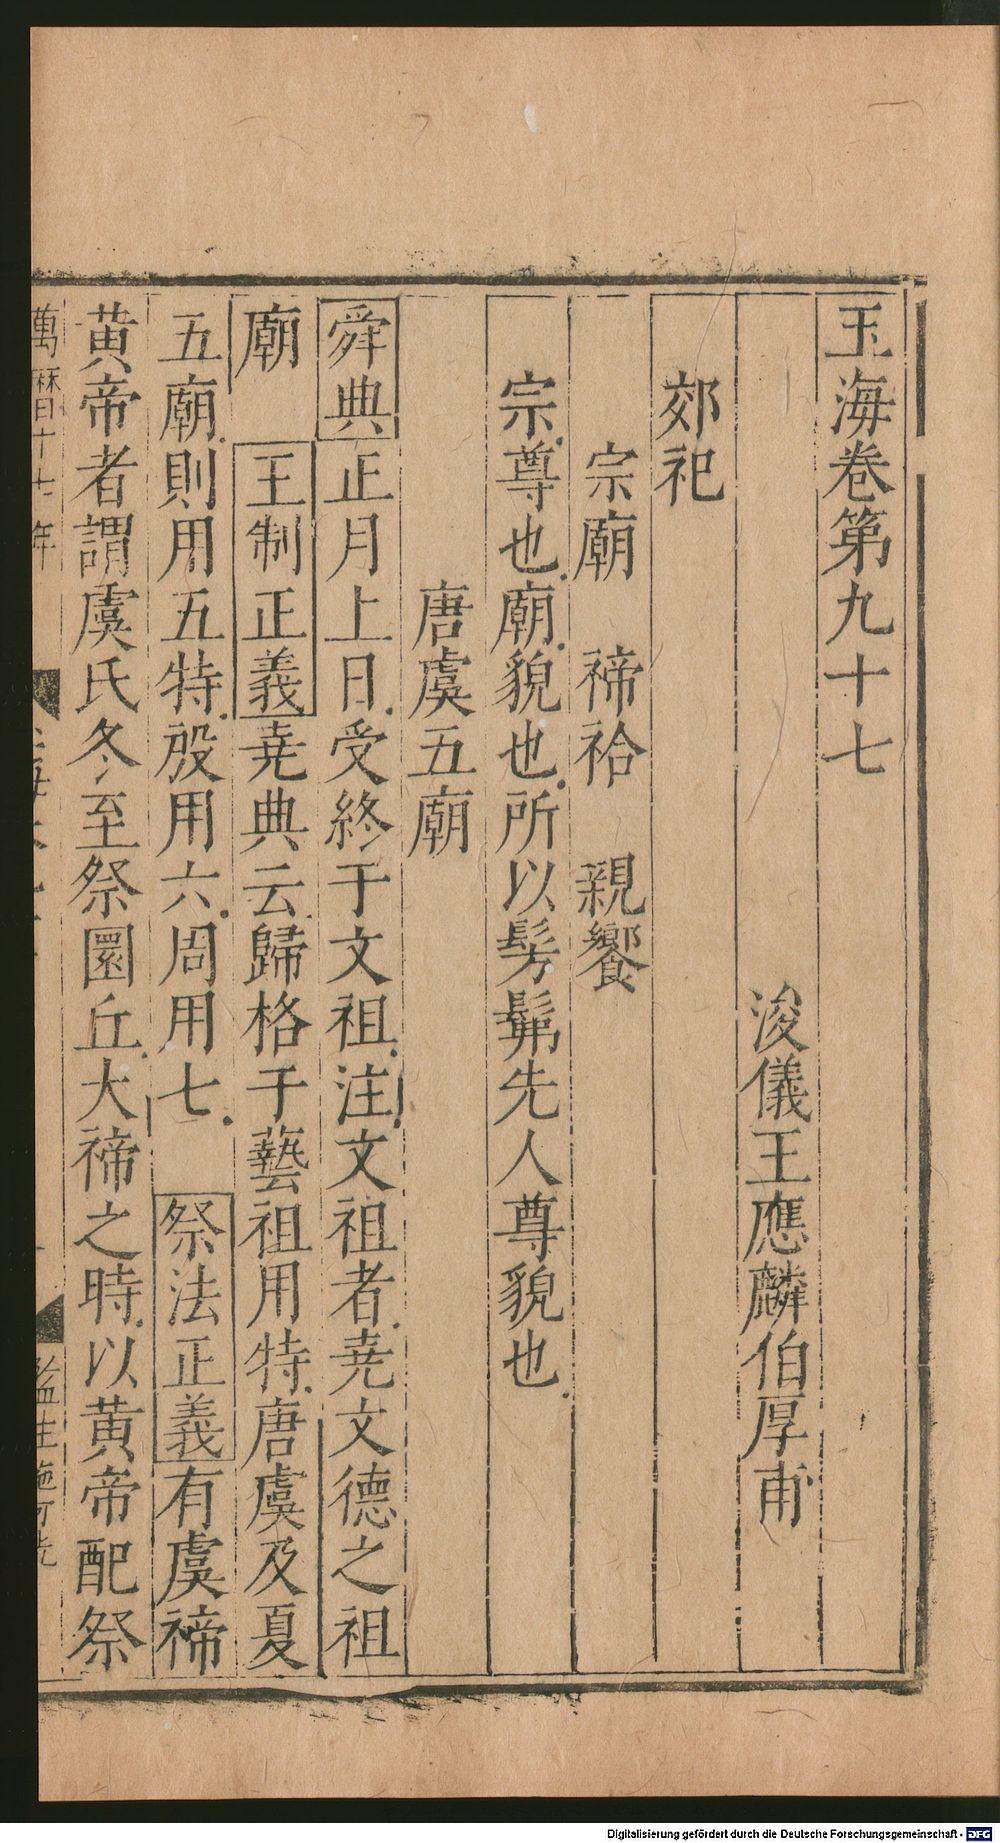 玉海卷第九十七
浚儀王應麟伯厚甫
郊祀
宗廟 禘祫 親饗
宗尊也廟貌也所以髣髴先人尊貌也
唐虞五廟
舜典正月上日受終于文祖注文祖者堯文德之祖
廟 王制正義堯典云歸格于藝祖用特唐虞及夏
五廟則用五特殷用六周用七 祭法正義有虞禘
黃帝者謂虞氏冬至祭圜丘大禘之時以黃帝配祭
萬曆十七年
監生施可
Digitalisierung gefördert durch die Deutsche Forschungsgemeinschaft - DFG